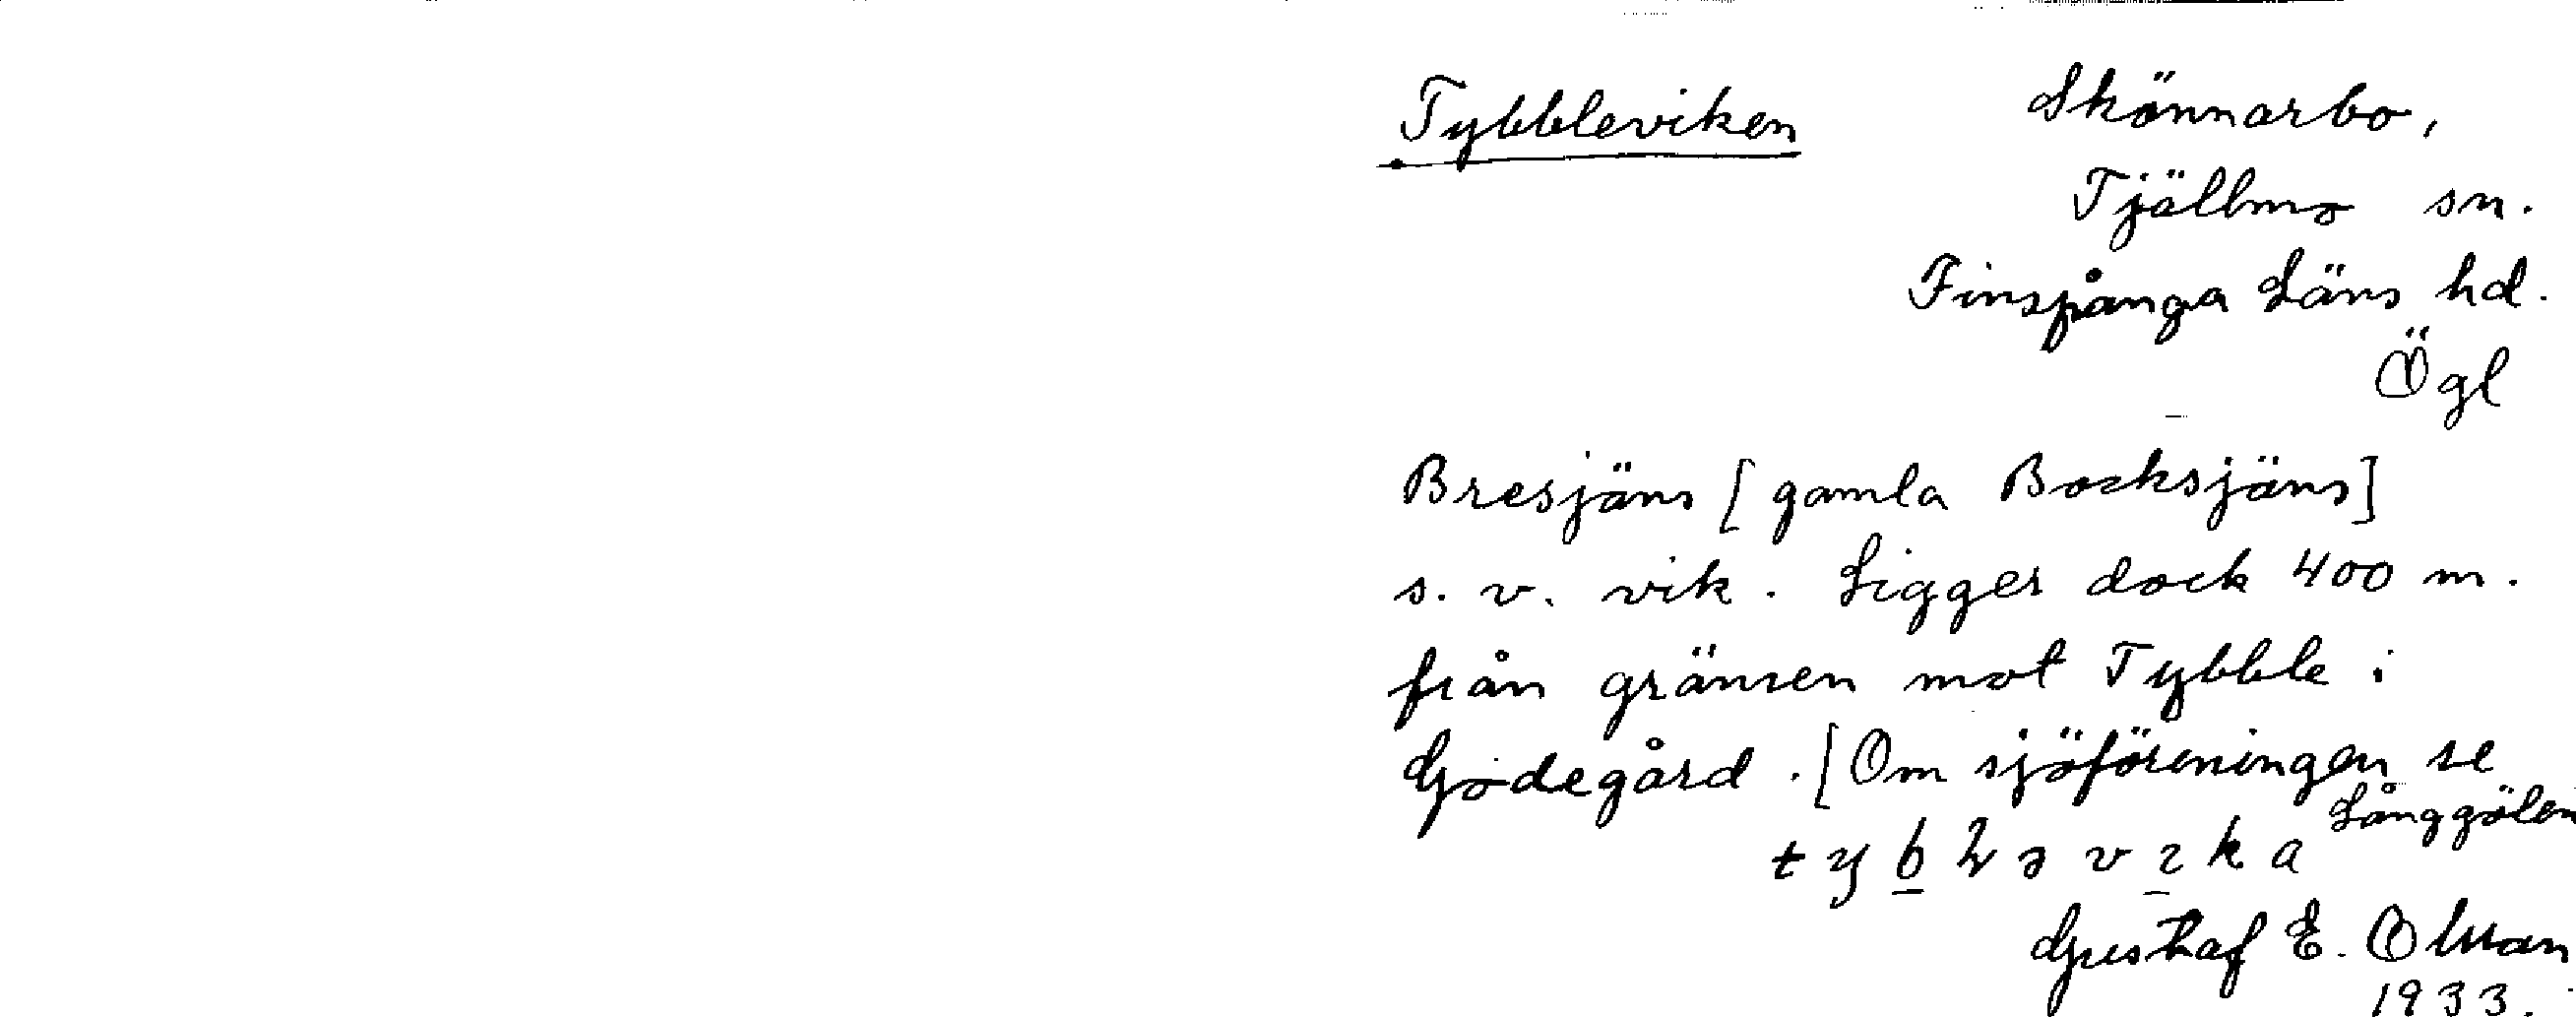 Tybbleviken
Skönnarbo,
Tjällmo sn.
Finspånga Läns hd.
Ögl
Bresjäns [gamla Bocksjäns]
s. v. vik. Ligger dock 400 m.
från gränsen mot Tybble i
Godegård. [Om sjöföreningen se
Långgölen
Gustaf E. Olsson
1933.